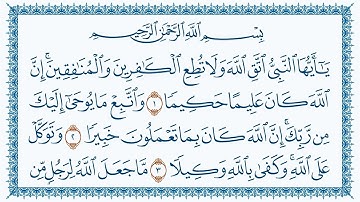 بِسْمِ اللَّهِ الرَّحْمَٰنِ الرَّحِيمِ
يَٰٓأَيُّهَا ٱلنَّبِىُّ ٱتَّقِ ٱللَّهَ وَلَا تُطِعِ ٱلْكَٰفِرِينَ وَٱلْمُنَٰفِقِينَ ۗ إِنَّ
ٱللَّهَ كَانَ عَلِيمًا حَكِيمًا ١ وَٱتَّبِعْ مَا يُوحَىٰٓ إِلَيْكَ
مِن رَّبِّكَ ۚ إِنَّ ٱللَّهَ كَانَ بِمَا تَعْمَلُونَ خَبِيرًا ٢ وَتَوَكَّلْ
عَلَى ٱللَّهِ ۚ وَكَفَىٰ بِٱللَّهِ وَكِيلًا ٣ مَّا جَعَلَ ٱللَّهُ لِرَجُلٍ مِّن